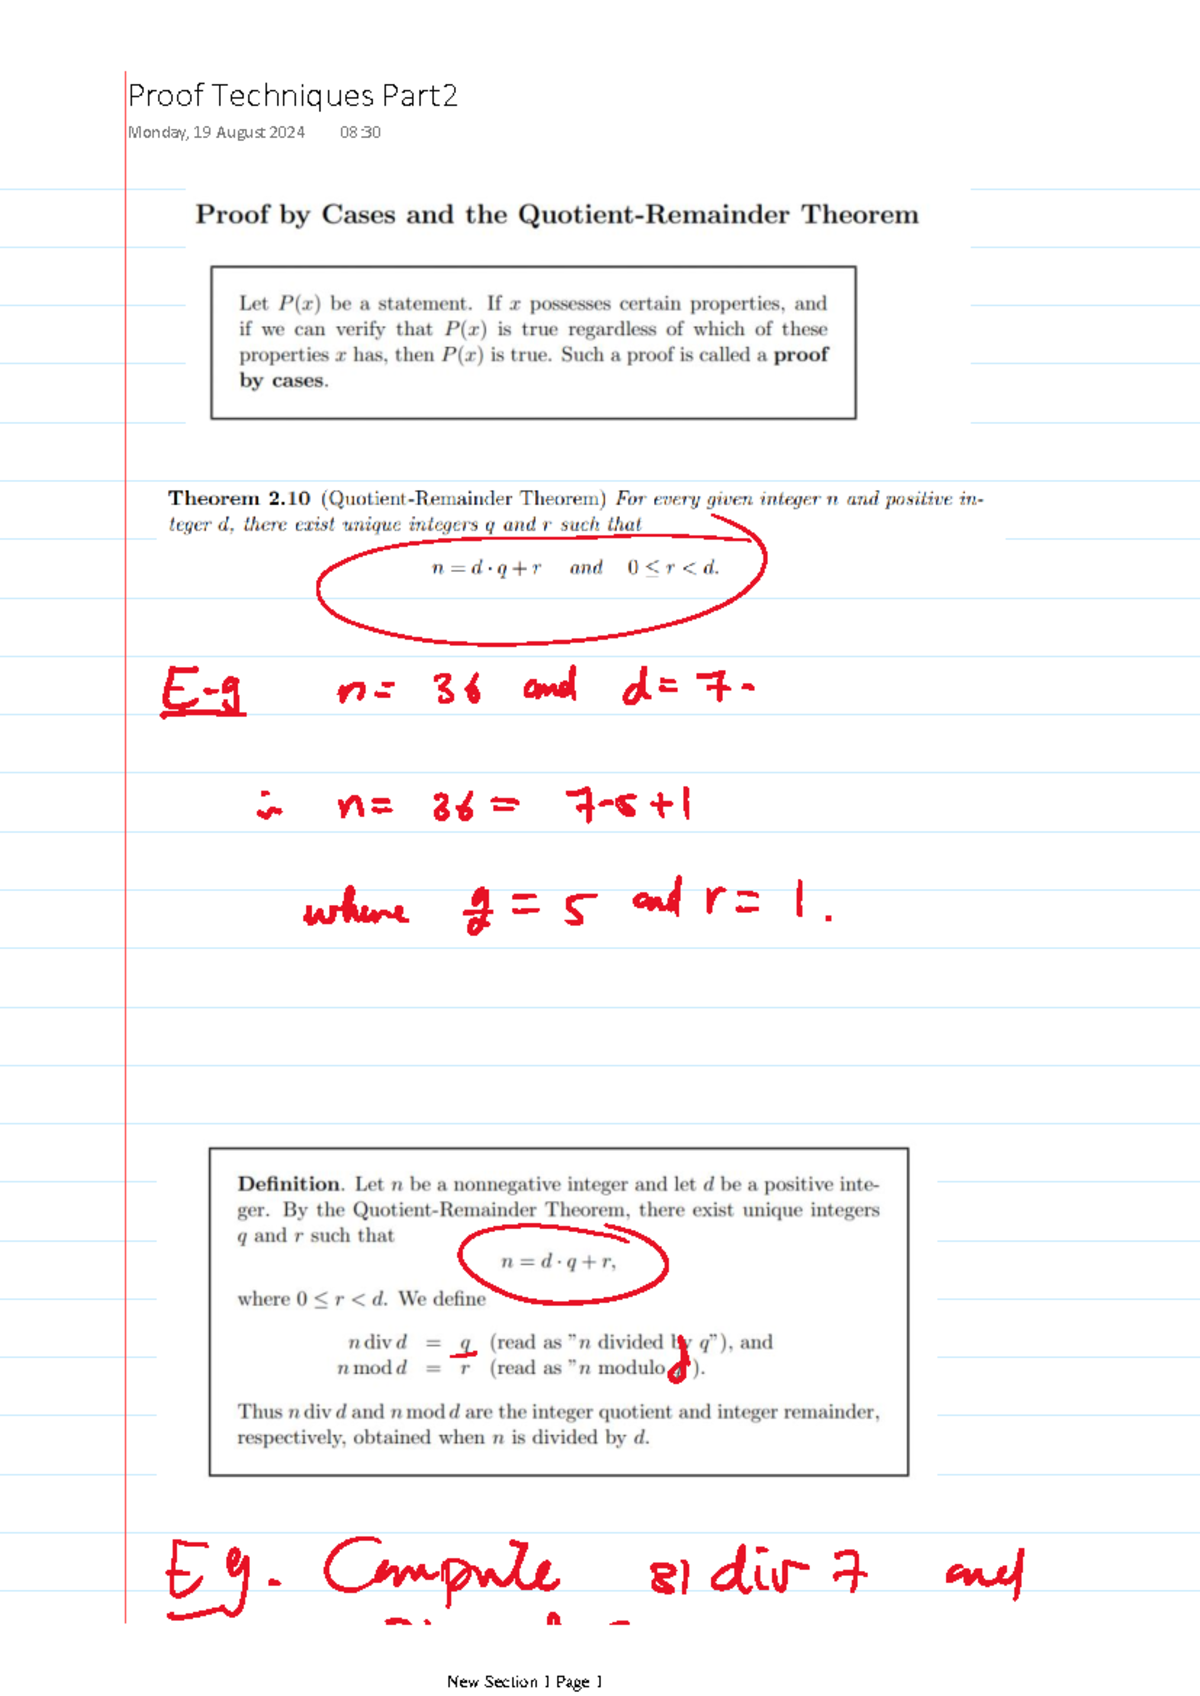 Proof Techniques Part2
Monday, 19 August 2024 08:30
Proof by Cases and the Quotient-Remainder Theorem
Let P(x) be a statement. If x possesses certain properties, and
if we can verify that P(x) is true regardless of which of these
properties x has, then P(x) is true. Such a proof is called a proof
by cases.
Theorem 2.10 (Quotient-Remainder Theorem) For every given integer n and positive in-
teger d, there exist unique integers q and r such that
n = d · q + r and 0 ≤ r < d.
E-g n = 36 and d = 7.
∴ n = 36 = 7·5+1
where q = 5 and r = 1.
Definition. Let n be a nonnegative integer and let d be a positive inte-
ger. By the Quotient-Remainder Theorem, there exist unique integers
q and r such that
n = d · q + r,
where 0 ≤ r < d. We define
n div d = q (read as "n divided by q"), and
n mod d = r (read as "n modulo d").
Thus n div d and n mod d are the integer quotient and integer remainder,
respectively, obtained when n is divided by d.
Eg. Compute 81 div 7 and
New Section 1 Page 1